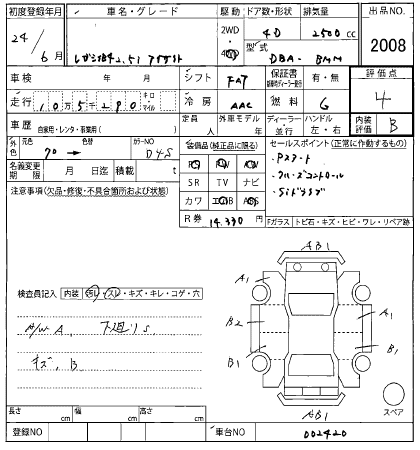 初度登録年月
車名・グレード
駆動
ドア数・形状
排気量
出品NO.
24/6月
レガシィB4 2.5i アイサイト
2WD・4WD
4D
2500 cc
2008
型式
DBA-BMM
車検 年 月
シフト
FAT
保証書
有・無
評価点
4
走行
10万5千290
キロ・マイル
冷房
AAC
燃料
G
車歴
自家用・レンタ・事業用( )
定員
人
外車モデル
年
ディーラー・並行
ハンドル
左・右
内装評価
B
外色
元色
色替
カラーNO
黒 →
D4S
装備品(純正品に限る)
セールスポイント(正常に作動するもの)
名義変更期限
月 日迄
積載
t
PS
PW
ナビ
Pスタート
SR
TV
クルーズコントロール
注意事項(欠品・修復・不具合箇所および状態)
カワ
エアB
ABS
R券
14,330円
Fガラス
トビ石・キズ・ヒビ・ワレ・リペア跡
AB1
A1
検査員記入
内装
汚レ・スレ・キズ・キレ・コゲ・穴
A/W A、
下廻りS
B2
A1
キズ、B
B1
B1
スペア
AB1
長さ cm
幅 cm
高さ cm
登録NO
車台NO
002420